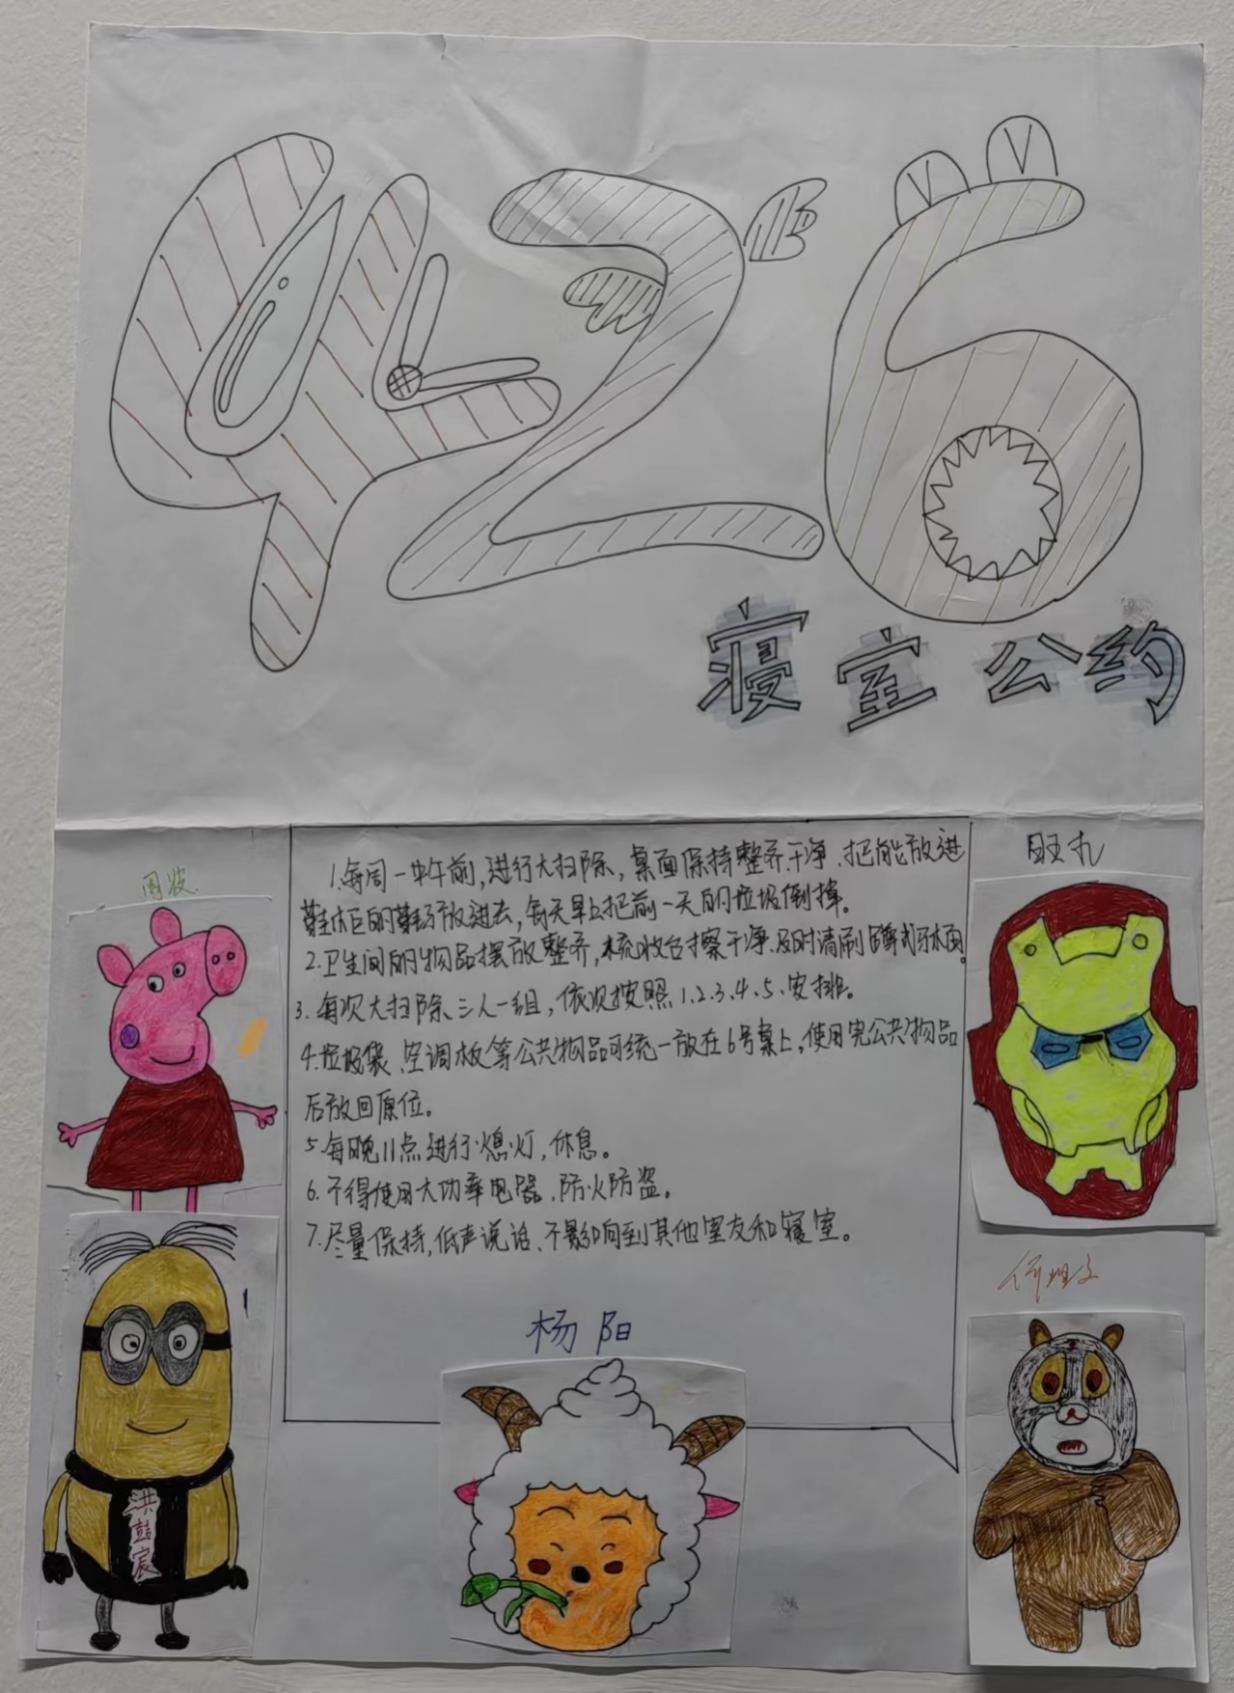 426
寝室公约
1.每周一中午前,进行大扫除,桌面保持整齐干净、把能放进
鞋柜的鞋子放进去,每天早上把前一天的垃圾倒掉。
2.卫生间的物品摆放整齐,梳妆台擦干净、及时清刷
3.每次大扫除、三人一组,依次按照1、2、3、4、5、安排。
4.垃圾袋、空调板等公共物品可统一放在6号桌上,使用完公共物品
后放回原位。
5.每晚11点进行熄灯,休息。
6.不得使用大功率电器、防火防盗。
7.尽量保持,低声说话、不影响到其他室友和寝室。
旺扎
杨阳